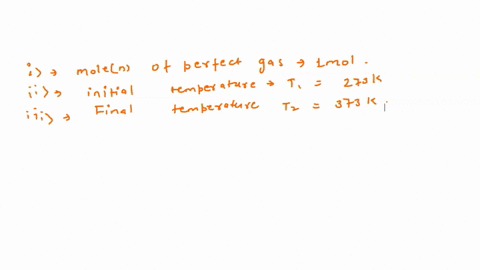 i> → mole(n) of perfect gas → 1mol.
ii> → initial temperature → T₁ = 273k
iii> → Final temperature T₂ = 373k